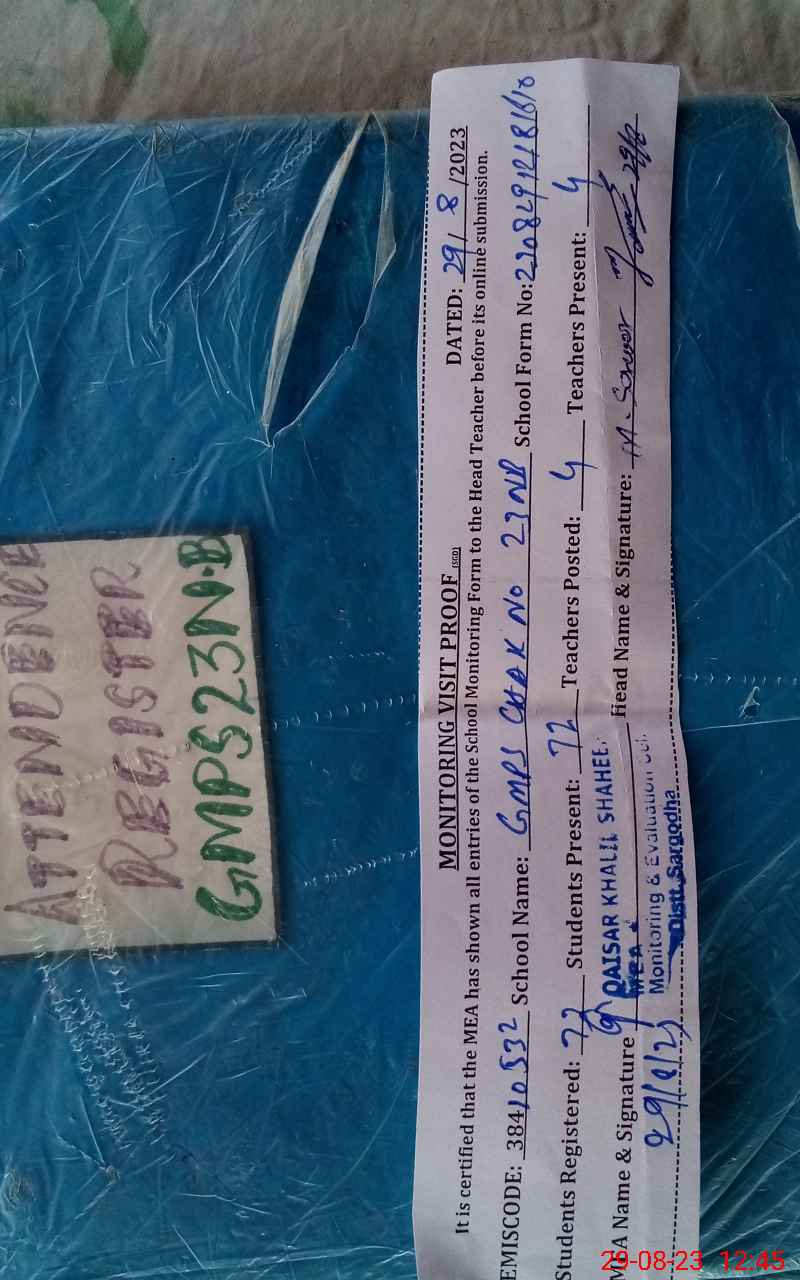 ATTENDENCE
REGISTER
GMPS23N.B
MONITORING VISIT PROOF (SGD)
DATED: 29/8/2023
It is certified that the MEA has shown all entries of the School Monitoring Form to the Head Teacher before its online submission.
EMISCODE: 38410532 School Name: GMPS CHAK NO 23NB School Form No:
Students Registered: 77 Students Present: 72 Teachers Posted: 4 Teachers Present: 4
MEA Name & Signature QAISAR KHALIL SHAHEE Head Name & Signature: M. Sarwar
MEA
Monitoring & Evaluation
Distt. Sargodha
29-08-23 12:45